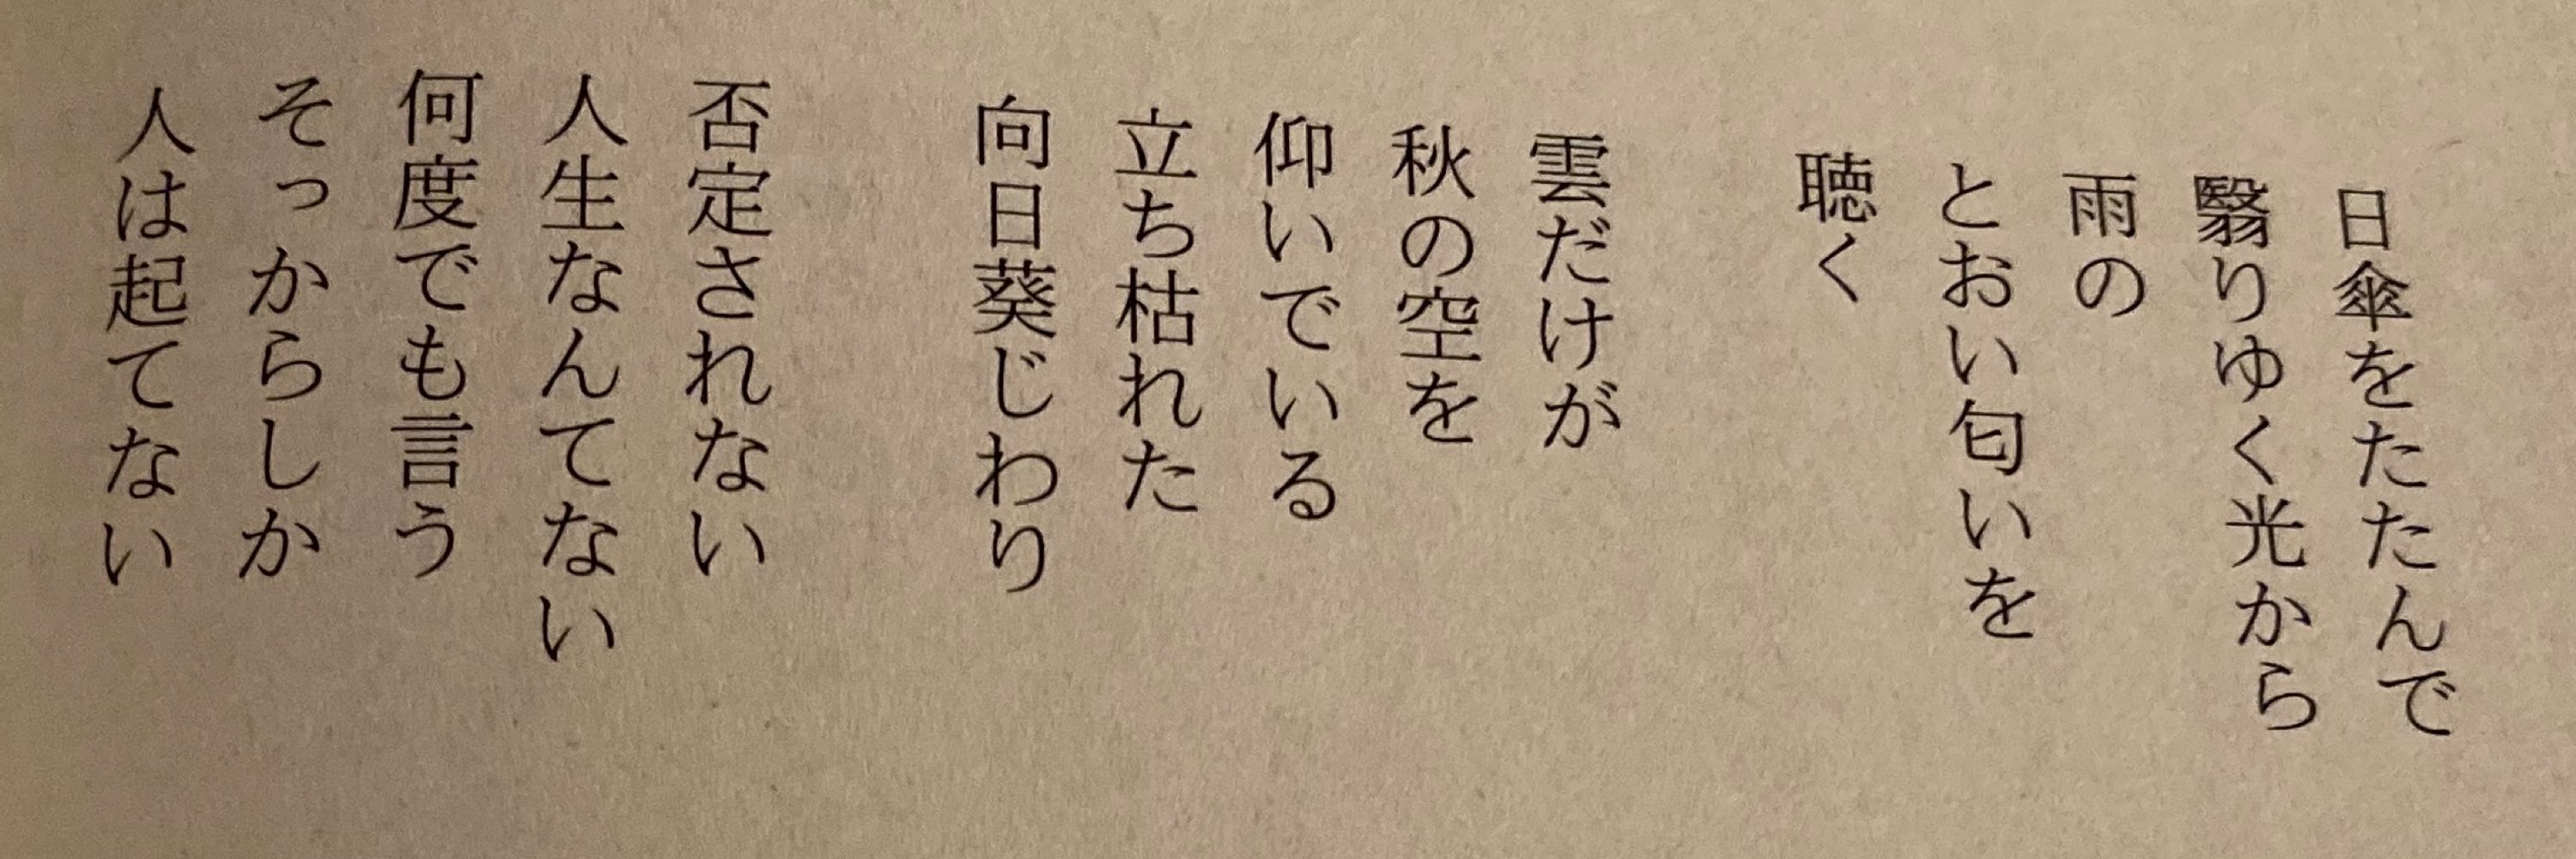 日傘をたたんで
翳りゆく光から
雨の
とおい匂いを
聴く
雲だけが
秋の空を
仰いでいる
立ち枯れた
向日葵じわり
否定されない
人生なんてない
何度でも言う
そっからしか
人は起てない